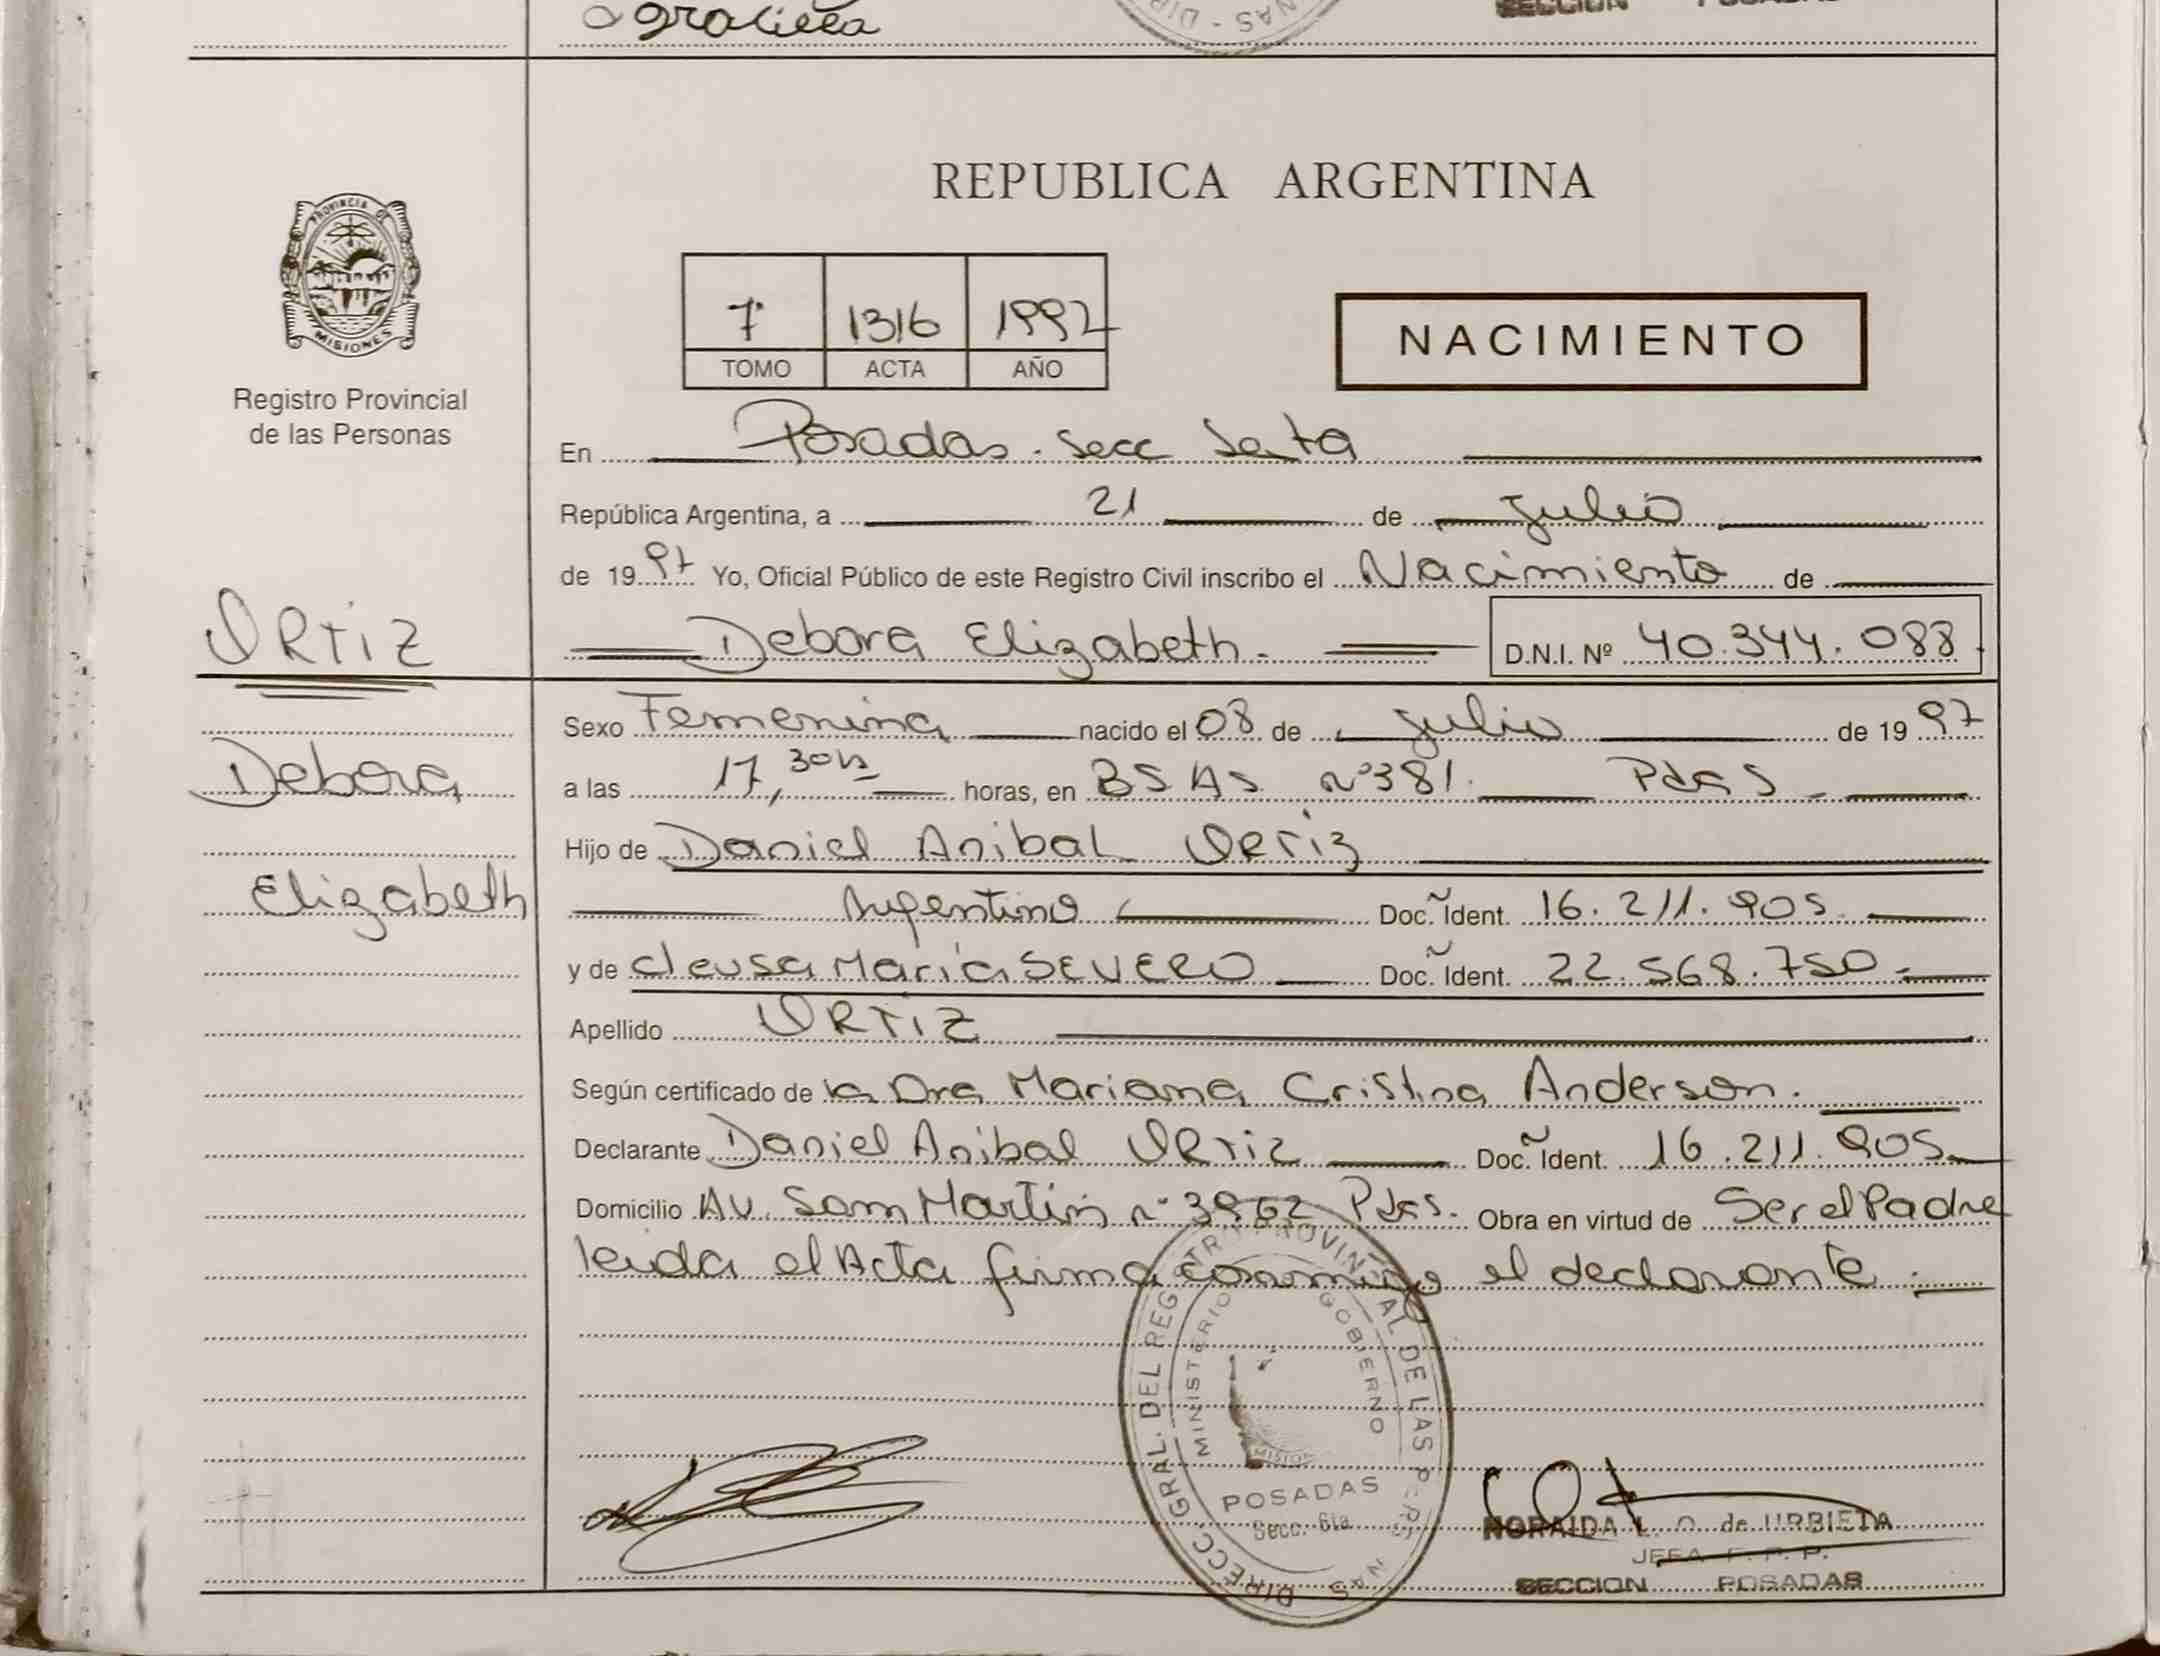 Graciela
SECCION POSADAS
REPUBLICA ARGENTINA
PROVINCIA DE
MISIONES
Registro Provincial
de las Personas
7 1316 1992
TOMO ACTA AÑO
NACIMIENTO
En Posadas. Secc Sexta
República Argentina, a 21 de julio
de 1997 Yo, Oficial Público de este Registro Civil inscribo el Nacimiento de
ORTIZ
Debora Elizabeth. D.N.I. Nº 40.344.088
Sexo Femenina nacido el 08 de julio de 1997
Debora
a las 17,30hs horas, en BS AS nº381. Pdas
Hijo de Daniel Anibal ORTiz
Elizabeth
Argentino Doc. Ident. 16.211.905
y de Cleusa María SEVERO Doc. Ident. 22.568.750
Apellido ORTiZ
Según certificado de la Dra Mariana Cristina Anderson.
Declarante Daniel Anibal ORTiz Doc. Ident. 16.211.905
Domicilio Av. San Martin nº 3962 Pdas. Obra en virtud de Ser el Padre
leida el Acta firma conmigo el declarante.
DIRECC. GRAL. DEL REGISTRO PROVINCIAL DE LAS PERSONAS
MINISTERIO GOBIERNO
MISIONES
POSADAS
Secc. 6ta
NORAIDA L. O. de URBIETA
JEFA R. P. P.
SECCION POSADAS